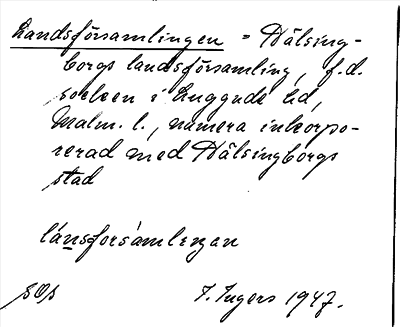 Landsförsamlingen = Hälsing-
borgs landsförsamling, f.d.
socken i Luggude hd,
Malm. l., numera inkorpo-
rerad med Hälsingborgs
stad
lánsforsàmlingan
I. Ingers 1947.